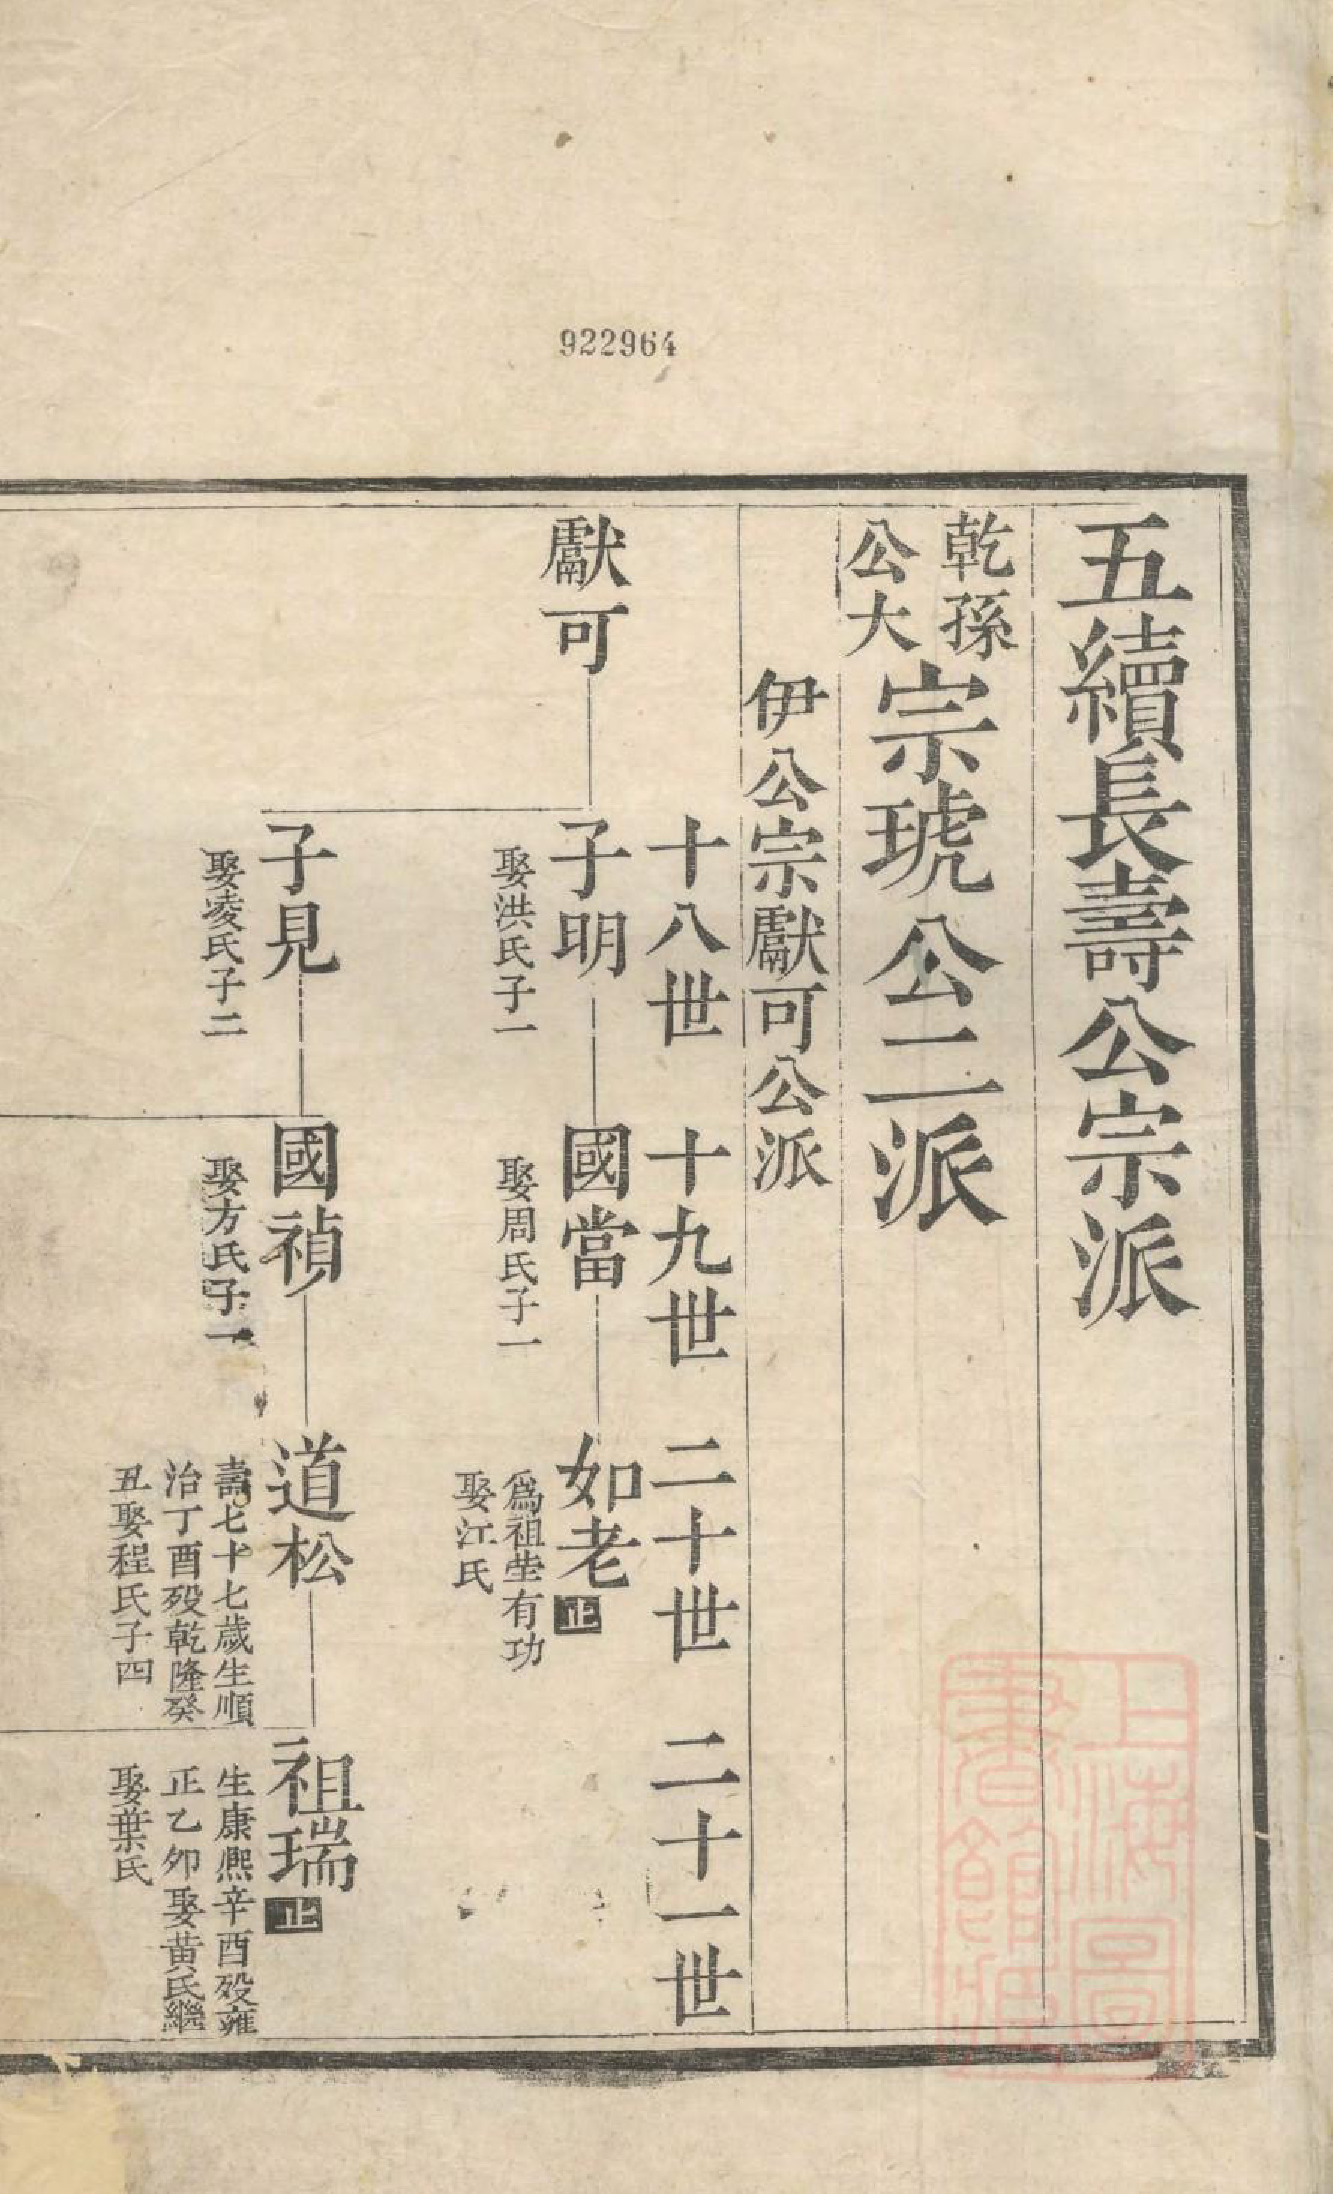 922964
五續長壽公宗派
乾孫
公大
宗琥公二派
伊公宗獻可公派
十八世
十九世
二十世
二十一世
獻可
子明
娶洪氏子一
國當
娶周氏子一
如老正
爲祖塋有功
娶江氏
子見
娶凌氏子二
國禎
娶方氏子一
道松
壽七十七歲生順
治丁酉歿乾隆癸
丑娶程氏子四
祖瑞正
生康熙辛酉歿雍
正乙卯娶黃氏繼
娶葉氏
上海圖
書館藏